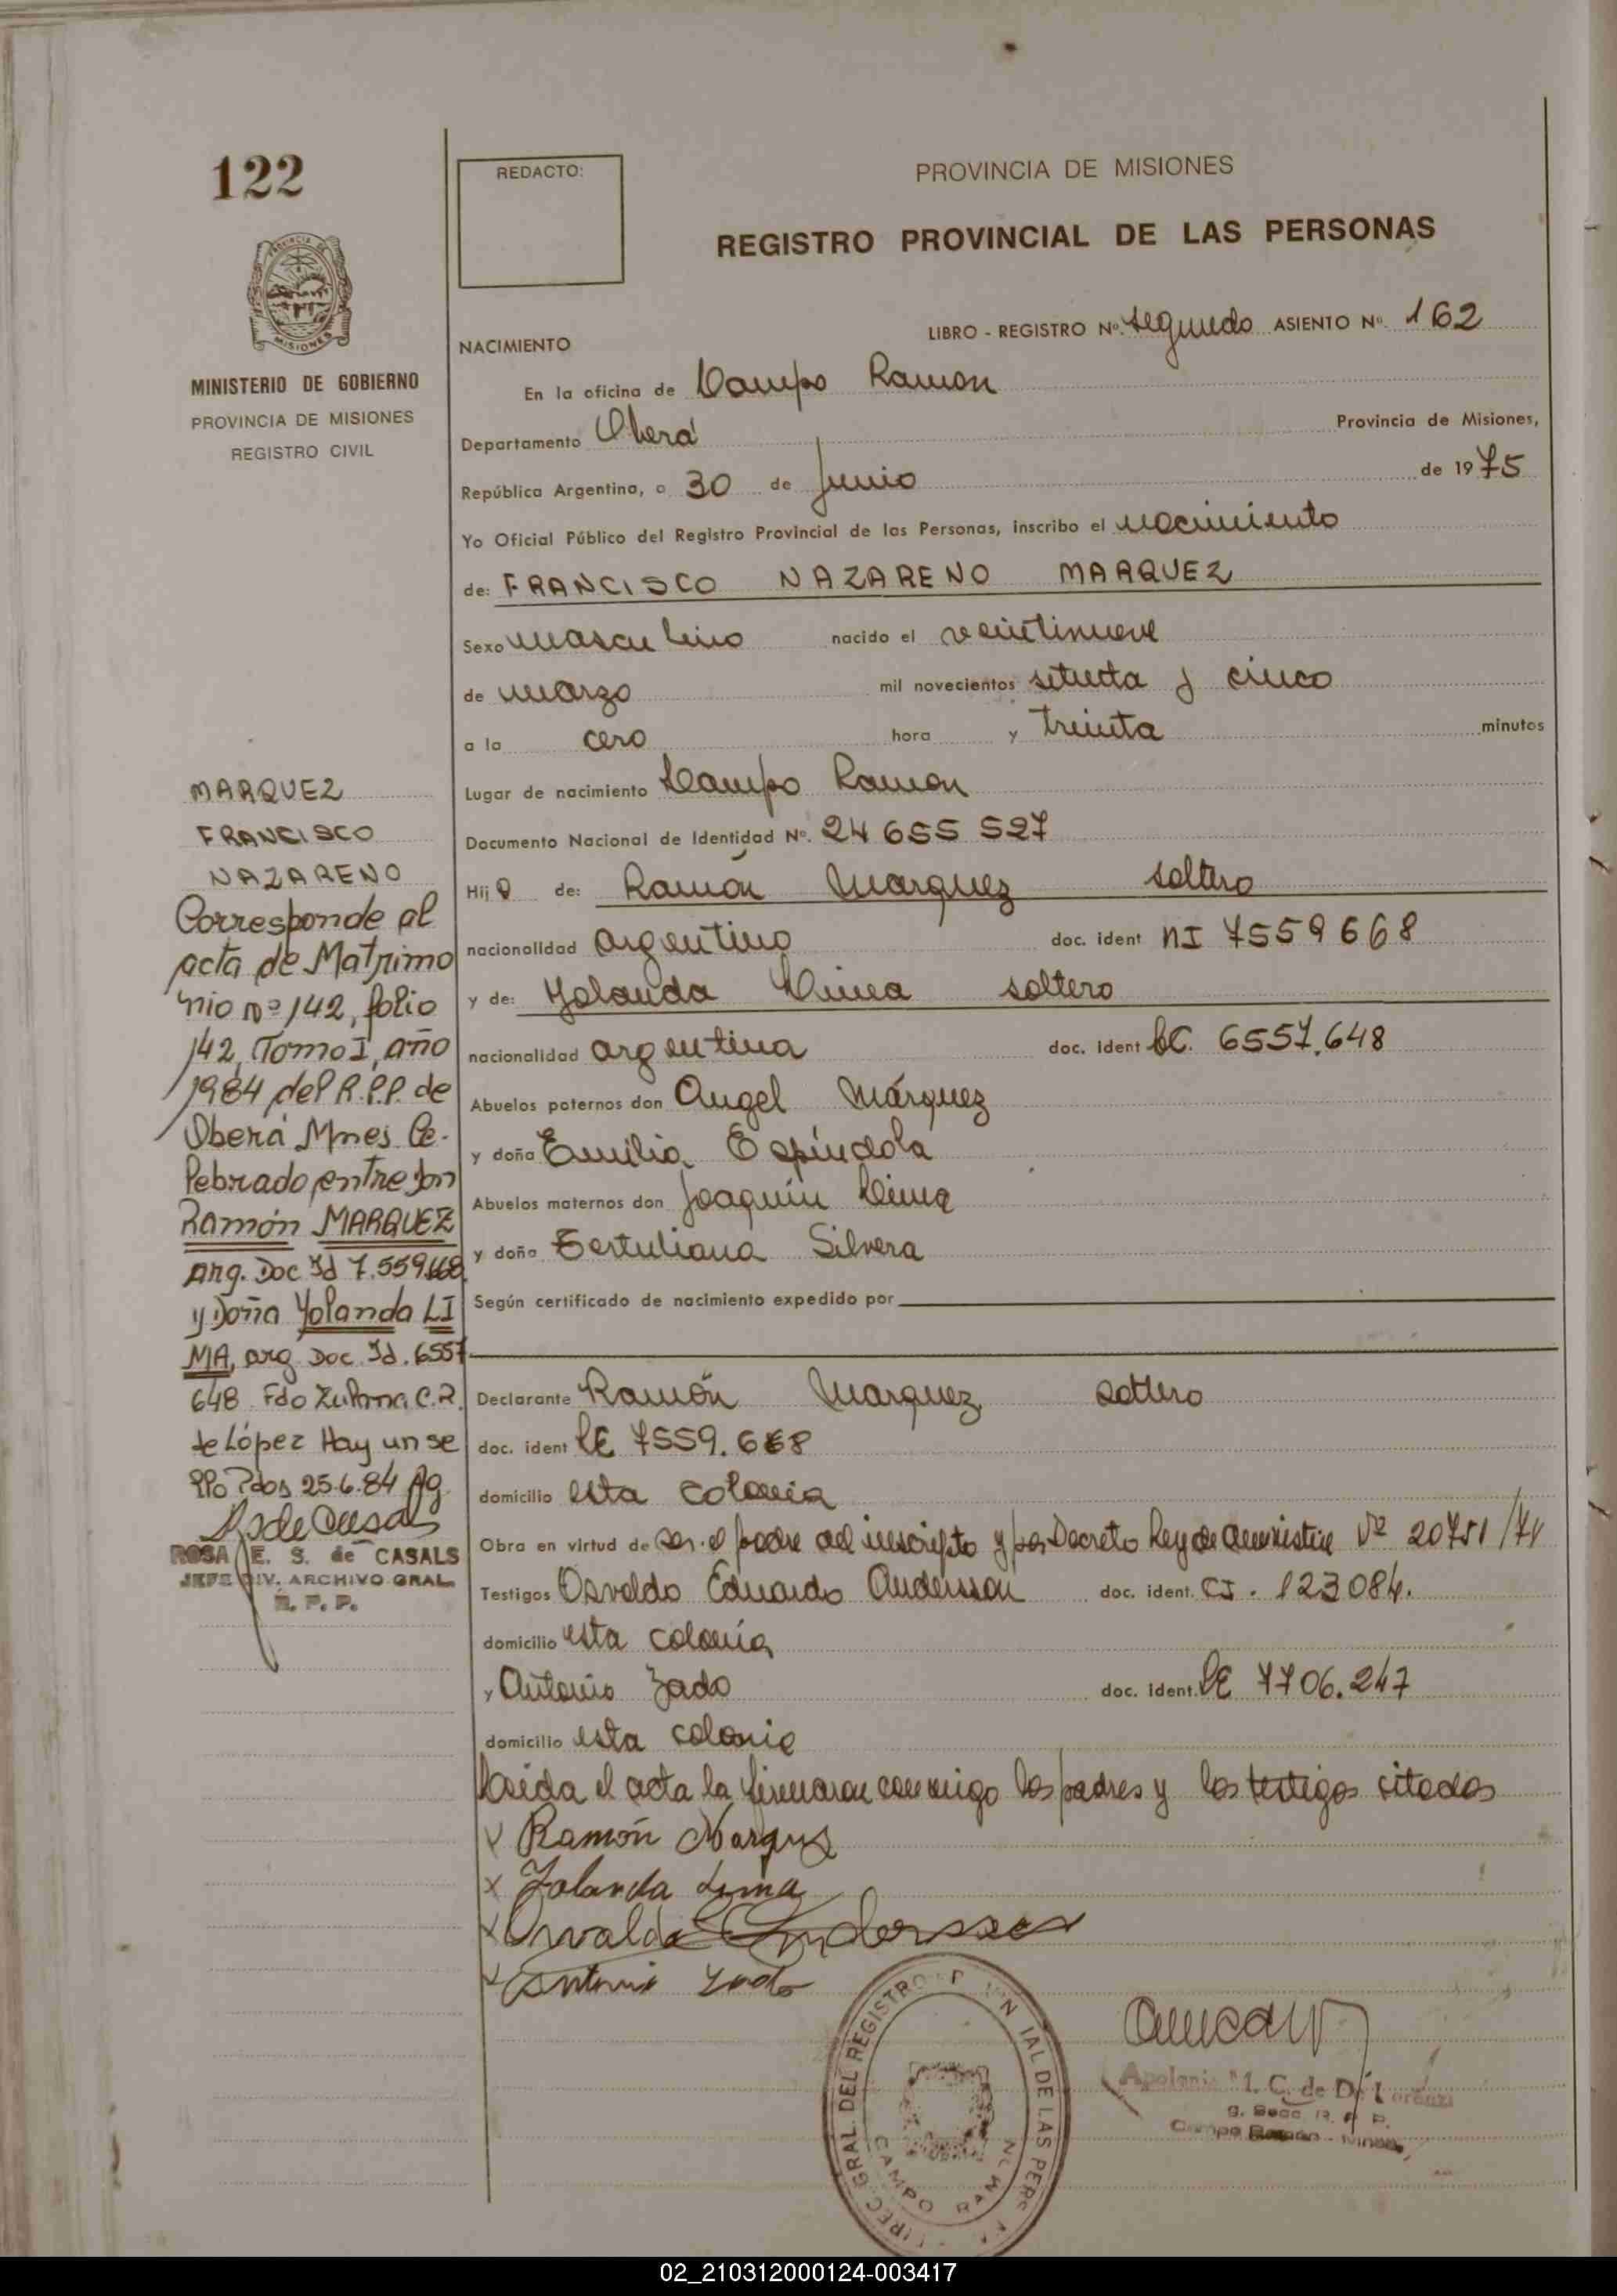 122
REDACTO:
PROVINCIA DE MISIONES
REGISTRO PROVINCIAL DE LAS PERSONAS
MISIONES
MINISTERIO DE GOBIERNO
PROVINCIA DE MISIONES
REGISTRO CIVIL
LIBRO - REGISTRO Nº segundo ASIENTO Nº 162
NACIMIENTO
En la oficina de Campo Ramon
Departamento Oberá Provincia de Misiones,
República Argentina, a 30 de Junio de 1975
Yo Oficial Público del Registro Provincial de las Personas, inscribo el nacimiento
de: FRANCISCO NAZARENO MARQUEZ
Sexo masculino nacido el veintinueve
de marzo mil novecientos setenta y cinco
a la cero hora y treinta minutos
Lugar de nacimiento Campo Ramon
Documento Nacional de Identidad Nº. 24 655 527
Hijo de: Ramón Marquez soltero
nacionalidad argentino doc. ident NI 7559668
y de: Yolanda Lima soltero
nacionalidad argentina doc. ident LC. 6557.648
Abuelos paternos don Angel Márquez
y doña Emilia Espíndola
Abuelos maternos don Joaquín Lima
y doña Tertuliana Silvera
Según certificado de nacimiento expedido por
Declarante Ramón Marquez soltero
doc. ident LE 7559.668
domicilio esta colonia
Obra en virtud de ser el padre del inscripto y por Decreto Ley de Amnistia Nº 20751/74
Testigos Osvaldo Eduardo Andersson doc. ident. CI. 123084.
domicilio esta colonia
y Antonio Zado doc. ident. LE 7706.247
domicilio esta colonia
Leida el acta la firmaron conmigo los padres y los testigos citados
X Ramón Marquez
X Yolanda Lima
X Osvaldo E Andersson
X Antonio Zado
MARQUEZ
FRANCISCO
NAZARENO
Corresponde al
acta de Matrimo
nio nº 142, folio
142, Tomo I, año
1984 del R.P.P. de
Oberá Mnes Ce-
lebrado entre don
Ramón MARQUEZ
Arg. Doc Id 7.559.668
y Doña Yolanda LI
MA, arg Doc. Id. 6557
648 Fdo Zulma C.R.
de López Hay un se
llo Pdas 25.6.84 Ag.
ROSA E. S. de CASALS
JEFE DIV. ARCHIVO GRAL.
R. P. P.
DIREC GRAL. DEL REGISTRO P IN IAL DE LAS PERS
CAMPO RAMON
M. C. de De Lorenzi
R. P. P.
Campo Ramón - Mnes
02_210312000124-003417